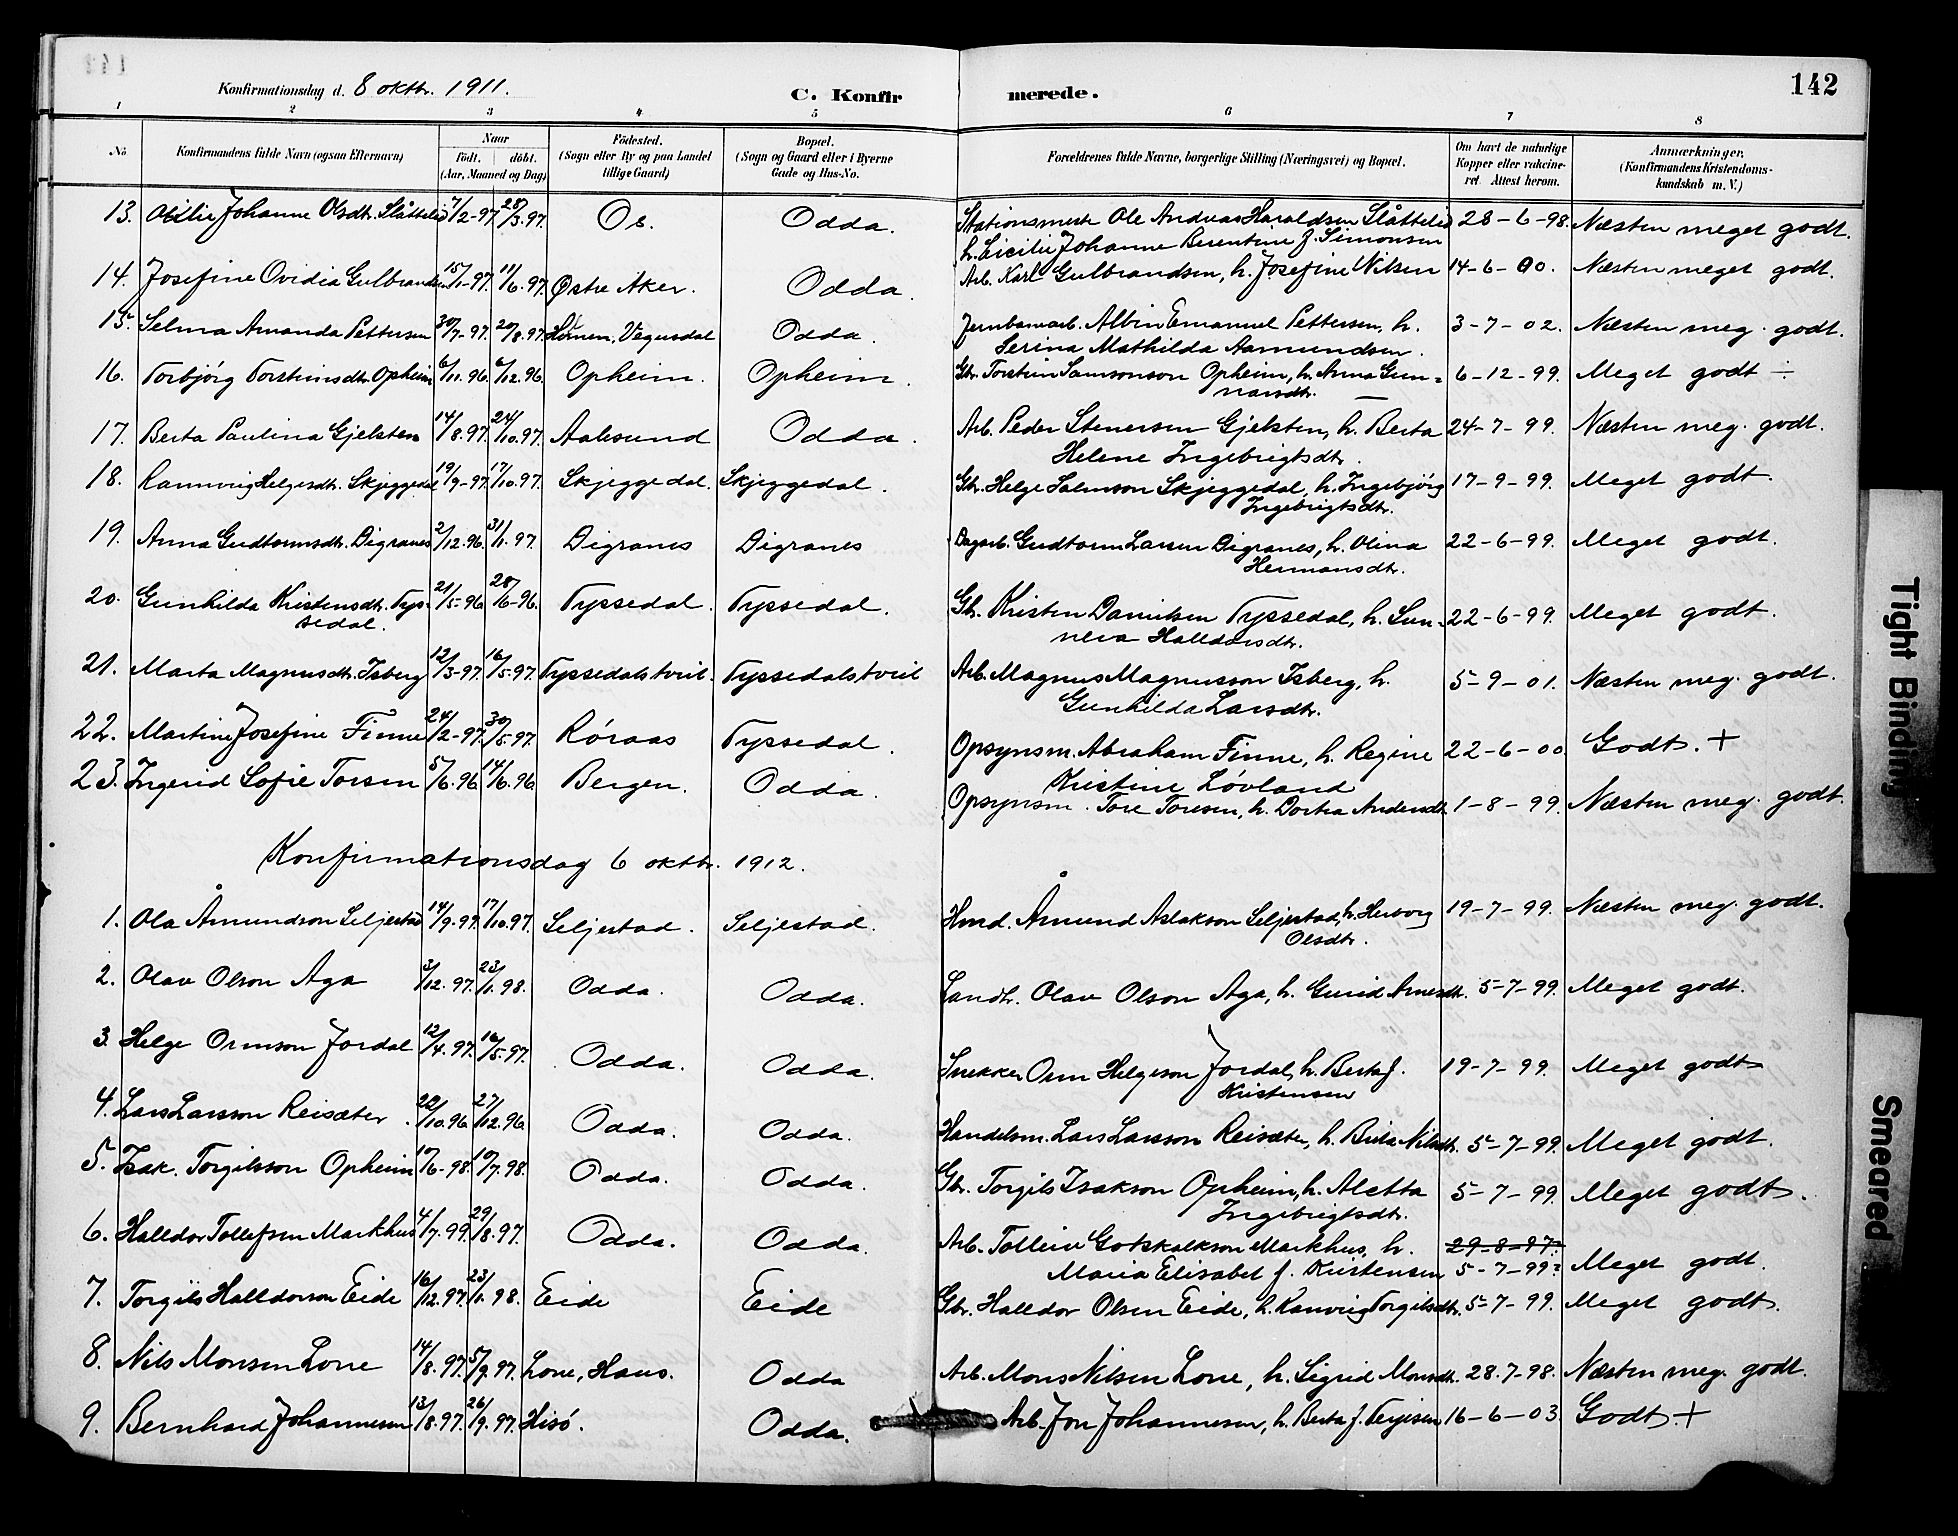 142
Konfirmationsdag d. 8 oktbr. 1911.
C. Konfirmerede.
1 2 3 4 5 6 7 8
No
Konfirmandens fulde Navn (ogsaa Efternavn)
Naar
født. døbt.
(Aar, Maaned og Dag)
Fødested.
(Sogn eller By og paa Landet
tillige Gaard)
Bopæl.
(Sogn og Gaard eller i Byerne
Gade og Hus-No.
Forældrenes fulde Navne, borgerlige Stilling (Næringsvei) og Bopæl.
Om havt de naturlige
Kopper eller vakcine-
ret. Attest herom.
Anmærkninger,
(Konfirmandens Kristendoms-
kundskab m. V.)
13. Johanne Olsdtr. Slåttelid 7/2-97 28/3.97. Os. Odda. Stationsmestr Ole Andreas Haraldsen Slåttelid 28-6-98. Næsten meget godt.
h. Cicilie Johanne Berentine f. Simonsen
14. Josefine Ovidia Gulbrandsen 15/1-97. 11/6.97. Østre Aker. Odda. Arb. Karl Gulbrandsen, h. Josefine Nilsen 14-6-00. Næsten meget godt.
15. Selma Amanda Pettersen 30/7-97. 20/8.97. Vegusdal Odda. Jernbanearb. Albin Emanuel Pettersen, h. 3-7-02. Næsten meg. godt.
Serina Mathilda Aamundsen.
16. Torbjörg Torsteinsdtr. Opheim 6/11.96. 6/12.96. Opheim. Opheim. Gbr. Torstein Samsonson Opheim, h. Anna Gun= 6-12-99. Meget godt ÷
narsdtr.
17. Berta Paulina Gjelsten 14/8.97. 24/10.97. Aalesund Odda. Arb. Peder Stenersen Gjelsten, h. Berta 24-7-99. Næsten meg. godt.
Helene Ingebrigtsdtr.
18. Rannveig Helgesdtr. Skjeggedal 19/9-97. 17/10.97. Skjeggedal. Skjeggedal. Gbr. Helge Salmson Skjeggedal, h. Ingebjörg 17-9-99. Meget godt.
Ingebrigtsdtr.
19. Anna Gudtormsdtr. Digranes 2/12.96. 31/1.97. Digranes Digranes Dagarb. Gudtorm Larsen Digranes, h. Olina 22-6-99. Meget godt.
Hermansdtr.
20. Gunhilda Kristensdtr. Tys- 21/5-96. 28/6-96. Tyssedal. Tyssedal. Gbr. Kristen Danielsen Tyssedal, h. Sun- 22-6-99. Meget godt.
sedal. neva Halldorsdtr.
21. Marta Magnusdtr. Isberg 12/3-97. 16/5.97. Tyssedalstveit. Tyssedalstveit Arb. Magnus Magnusson Isberg, h. 5-9-01. Næsten meg. godt.
Gunhilda Larsdtr.
22. Martine Josefine Finne 24/2-97. 30/5-97. Røraas Tyssedal. Opsynsm. Abraham Finne, h. Regine 22-6-00. Godt. +
Kristine Løvland
23. Ingerid Sofie Torsen 5/6.96. 14/6.96. Bergen. Odda. Opsynsm. Tore Toresen, h. Dortea Andersdtr. 1-8-99. Næsten meg. godt.
Konfirmationsdag 6 oktbr. 1912.
1. Ola Åmundson Seljestad 14/9.97. 17/10.97. Seljestad. Seljestad. Hmd. Åmund Aslakson Seljestad, h. Herborg 19-7-99. Næsten meg. godt.
Olsdtr.
2. Olav Olson Aga 3/12.97. 23/1.98. Odda. Odda. Landh. Olav Olson Aga, h. Gurid Arnesdtr. 5-7-99. Meget godt.
3. Helge Ormson Jordal 12/4.97. 16/5-97. Odda. Odda. Snekker Orm Helgeson Jordal, h. Berta f. 19-7-99. Meget godt
Kristensen
4. Lars Larsson Reisæter 22/10.96. 27/12.96. Odda. Odda. Handelsm. Lars Larsson Reisæter, h. Brita Nilsdtr. 5-7-99. Meget godt.
5. Isak Torgilsson Opheim 10/6-98. 10/7.98. Odda. Odda. Gbr. Torgils Isakson Opheim, h. Aletta 5-7-99. Meget godt.
Ingebrigtsdtr.
6. Halldor Tollefsen Markhus 4/7.99. 29/8.97. Odda. Odda. Arb. Tolleiv Gotskalkson Markhus, h. 29-8-97.
Maria Elisabet f. Kristensen 5-7-99? Meget godt.
7. Torgils Halldorson Eide 16/12.97. 23/1.98. Eide Eide Gbr. Halldor Olsen Eide, h. Ranveig Torgilsdtr. 5-7-99. Meget godt.
8. Nils Monsen Lone 14/8.97. 5/9.97. Lone, Haus. Odda Arb. Mons Nilsen Lone, h. Sigrid Monsdtr. 28.7-98. Næsten meg. godt.
9. Bernhard Johannesen 13/8.97. 26/9.97. Hisö. Odda. Arb. Jon Johannesen, h. Berta f. Terjesen 16-6-03. Godt. +
Tight Binding
Smeared